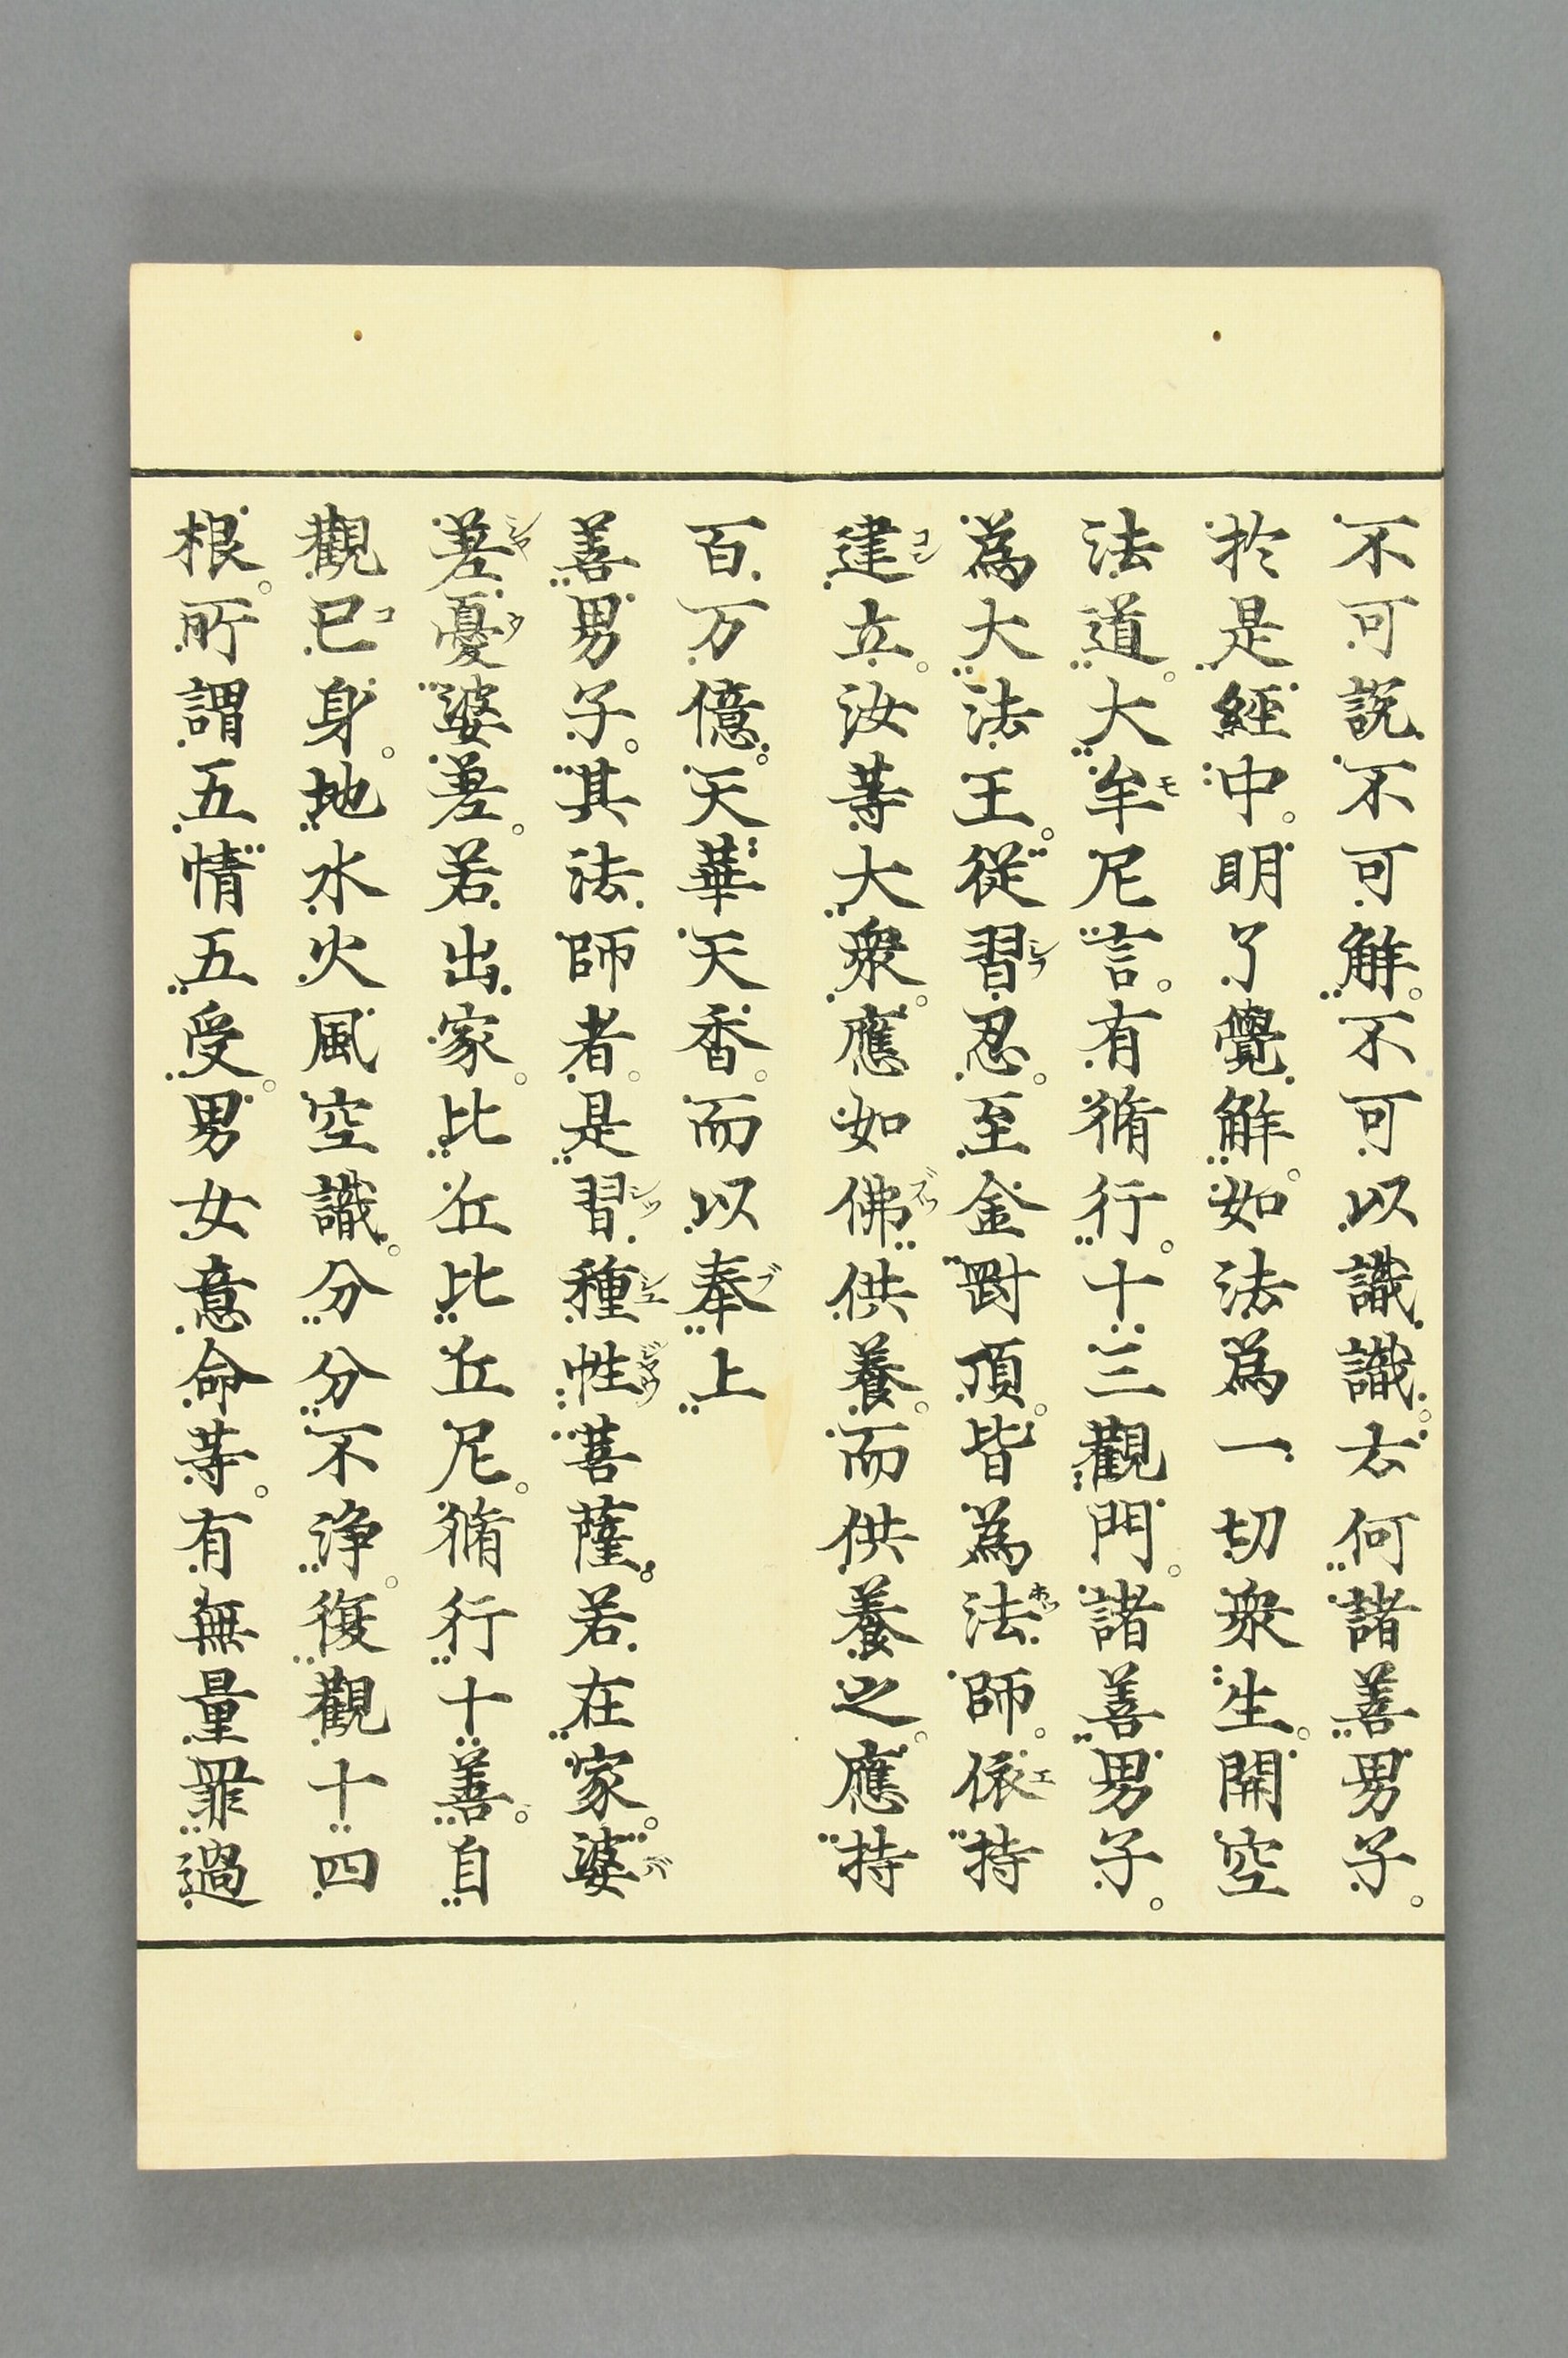 不可説不可解。不可以識識。云何諸善男子。
於是經中。明了覺解。如法為一切衆生。開空
法道。大牟尼言。有脩行。十三觀門。諸善男子。
為大法王。從習忍。至金剛頂。皆為法師。依持
建立。汝等大衆。應如佛供養。而供養之。應持
百万億。天華天香。而以奉上
善男子。其法師者。是習種性菩薩。若在家。婆
差憂婆差。若出家。比丘比丘尼。脩行十善。自
觀已身。地水火風空識。分分不浄。復觀十四
根。所謂五情五受。男女意命等。有無量罪過